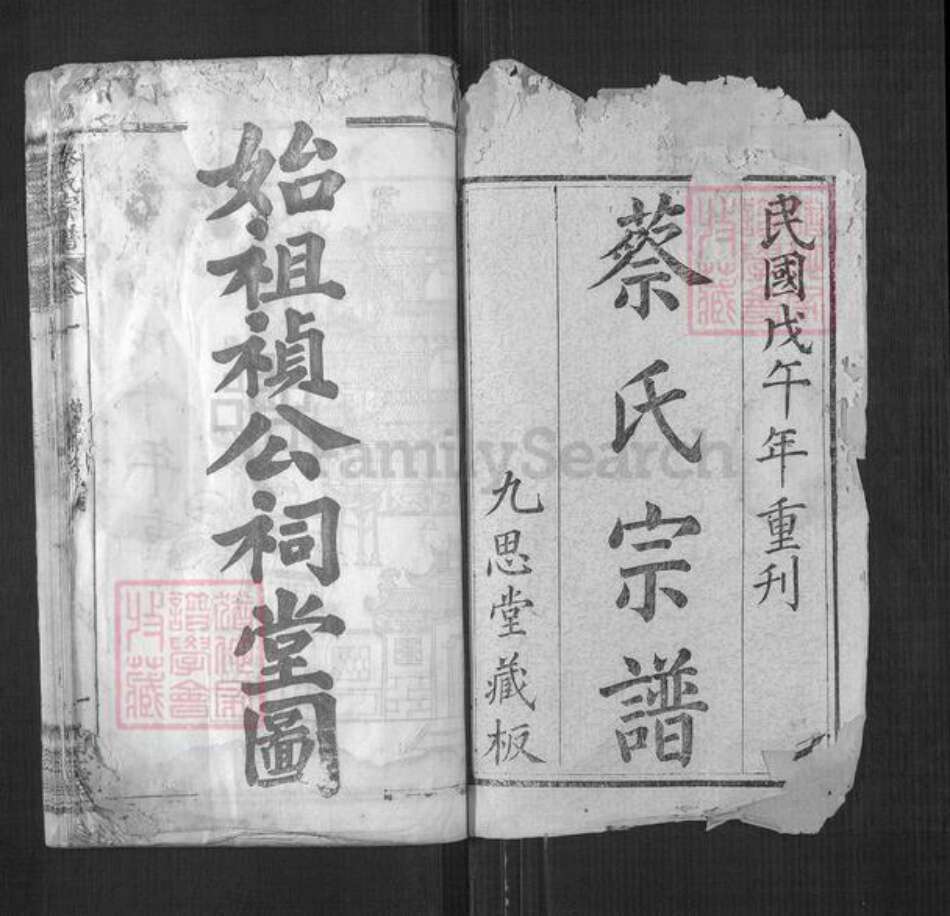 民國戊午年重刊
蔡氏宗譜
九思堂藏板
始祖禎公祠堂圖
FamilySearch